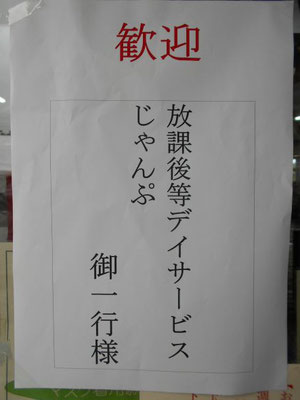 歓迎
放課後等デイサービス
じゃんぷ
御一行様